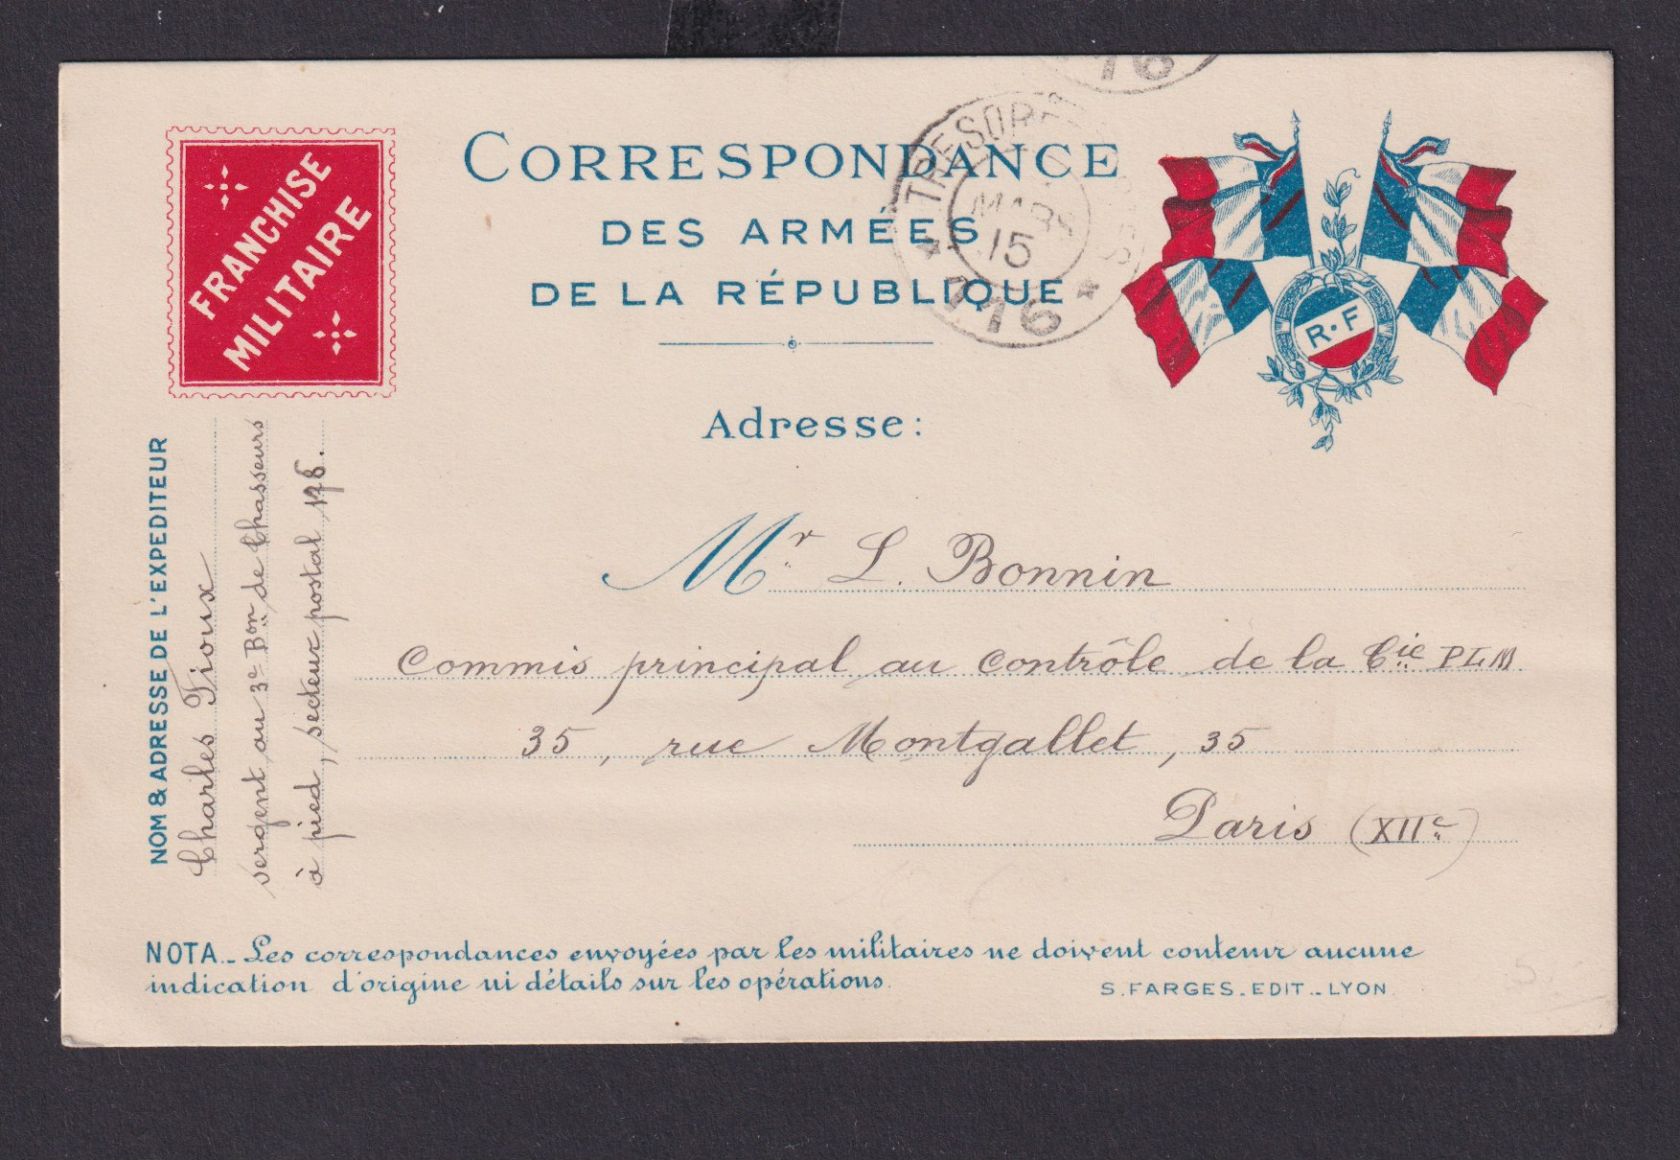 FRANCHISE
MILITAIRE
CORRESPONDANCE
DES ARMÉES
DE LA RÉPUBLIQUE
MARS
15
116
16
R·F
Adresse:
Mr L. Bonnin
Commis principal au Contrôle de la Cie PLM
35, rue Montgallet, 35
Paris (XIIe)
NOM & ADRESSE DE L'EXPEDITEUR
Charles Tioux
sergent au 3e Bon de Chasseurs
à pied, secteur postal 116.
NOTA_ Les correspondances envoyées par les militaires ne doivent contenir aucune
indication d'origine ni détails sur les opérations.
S. FARGES. EDIT.. LYON